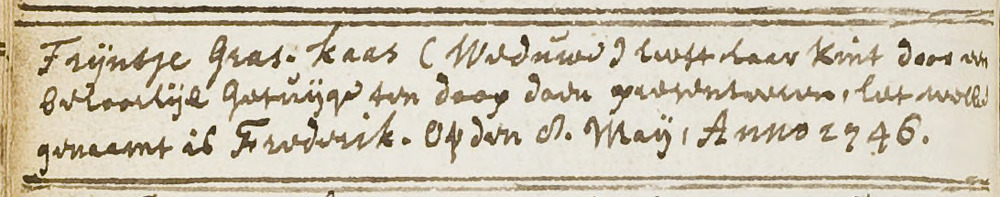 Trijntje Gras. kaas (Weduwe) heeft haar Kint door een
behoorlijk Getuijge ten doop doen presenteren, het welke
genaamt is Frederik. Op den 8. Maÿ, Anno 1746.